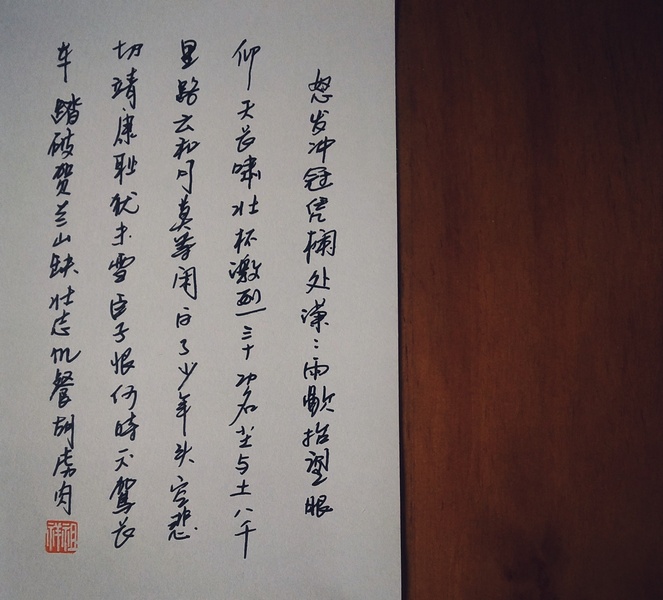 怒发冲冠凭栏处潇:雨歇抬望眼
仰天长啸壮怀激烈三十功名尘与土八千
里路云和月莫等闲白了少年头空悲
切靖康耻犹未雪臣子恨何时灭驾长
车踏破贺兰山缺壮志饥餐胡虏肉